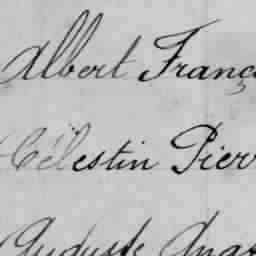 Albert Franç
Célestin Pierr
Auguste